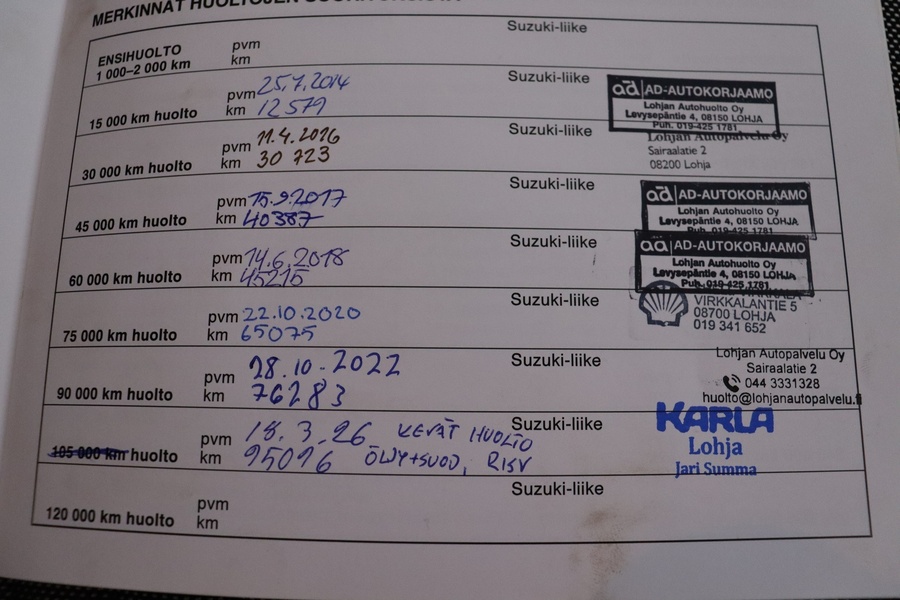 MERKINNÄT HUOLTOJEN
ENSIHUOLTO
1 000–2 000 km
pvm
km
Suzuki-liike
15 000 km huolto
pvm 25.7.2014
km 12579
Suzuki-liike
ad AD-AUTOKORJAAMO
Lohjan Autohuolto Oy
Levysepäntie 4, 08150 LOHJA
Puh. 019-425 1781
30 000 km huolto
pvm 11.4.2016
km 30 723
Suzuki-liike
Lohjan Autopalvelu Oy
Sairaalatie 2
08200 Lohja
45 000 km huolto
pvm 15.9.2017
km 40387
Suzuki-liike
ad AD-AUTOKORJAAMO
Lohjan Autohuolto Oy
Levysepäntie 4, 08150 LOHJA
Puh. 019-425 1781
60 000 km huolto
pvm 14.6.2018
km 45215
Suzuki-liike
ad AD-AUTOKORJAAMO
Lohjan Autohuolto Oy
Levysepäntie 4, 08150 LOHJA
Puh. 019-425 1781
75 000 km huolto
pvm 22.10.2020
km 65075
Suzuki-liike
VIRKKALANTIE 5
08700 LOHJA
019 341 652
90 000 km huolto
pvm 28.10.2022
km 76283
Suzuki-liike
Lohjan Autopalvelu Oy
Sairaalatie 2
044 3331328
huolto@lohjanautopalvelu.fi
105 000 km huolto
pvm 18.3.26 KEVÄT HUOLTO
km 95096 ÖLJY+SUOD, RISV
Suzuki-liike
KARLA
Lohja
Jari Summa
120 000 km huolto
pvm
km
Suzuki-liike